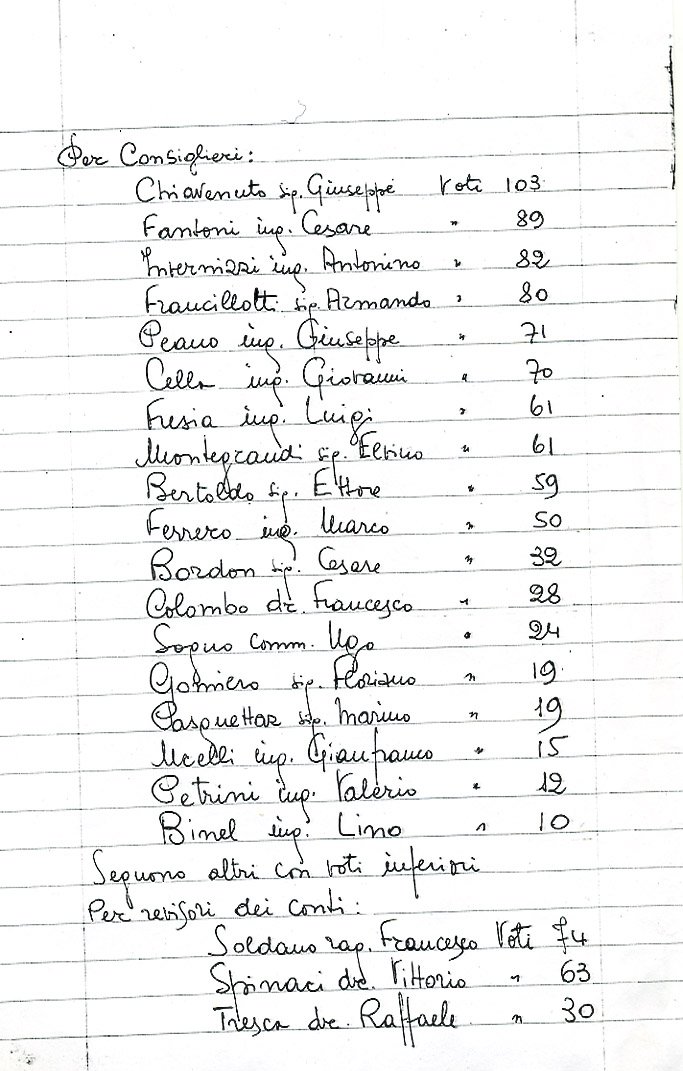 Per Consiglieri:
Chiavenuto sig. Giuseppe Voti 103
Fantoni ing. Cesare " 89
Intermizzi ing. Antonino " 82
Francillotti sig. Armando " 80
Peano ing. Giuseppe " 71
Cella ing. Giovanni " 70
Fresia ing. Luigi " 61
Montegrandi sig. Elvino " 61
Bertoldo sig. Ettore " 59
Ferrero ing. Marco " 50
Bordon sig. Cesare " 32
Colombo dr. Francesco " 28
Sogno comm. Ugo " 24
Gomiero sig. Floriano " 19
Pasquettaz sig. Marino " 19
Ucelli ing. Gianfranco " 15
Petrini ing. Valerio " 12
Binel ing. Lino " 10
Seguono altri con voti inferiori
Per revisori dei conti:
Soldano rag. Francesco Voti 74
Spinaci dr. Vittorio " 63
Tresca dr. Raffaele " 30